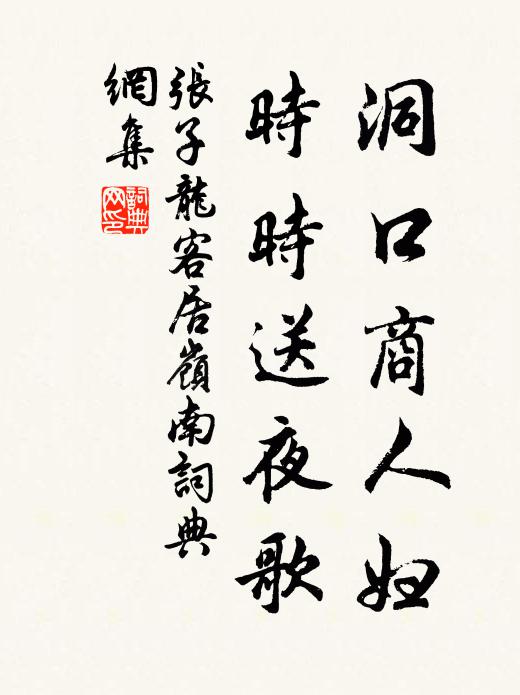 洞口商人婦
時時送夜歌
張子龍客居嶺南詞典
網集
詞典
网印